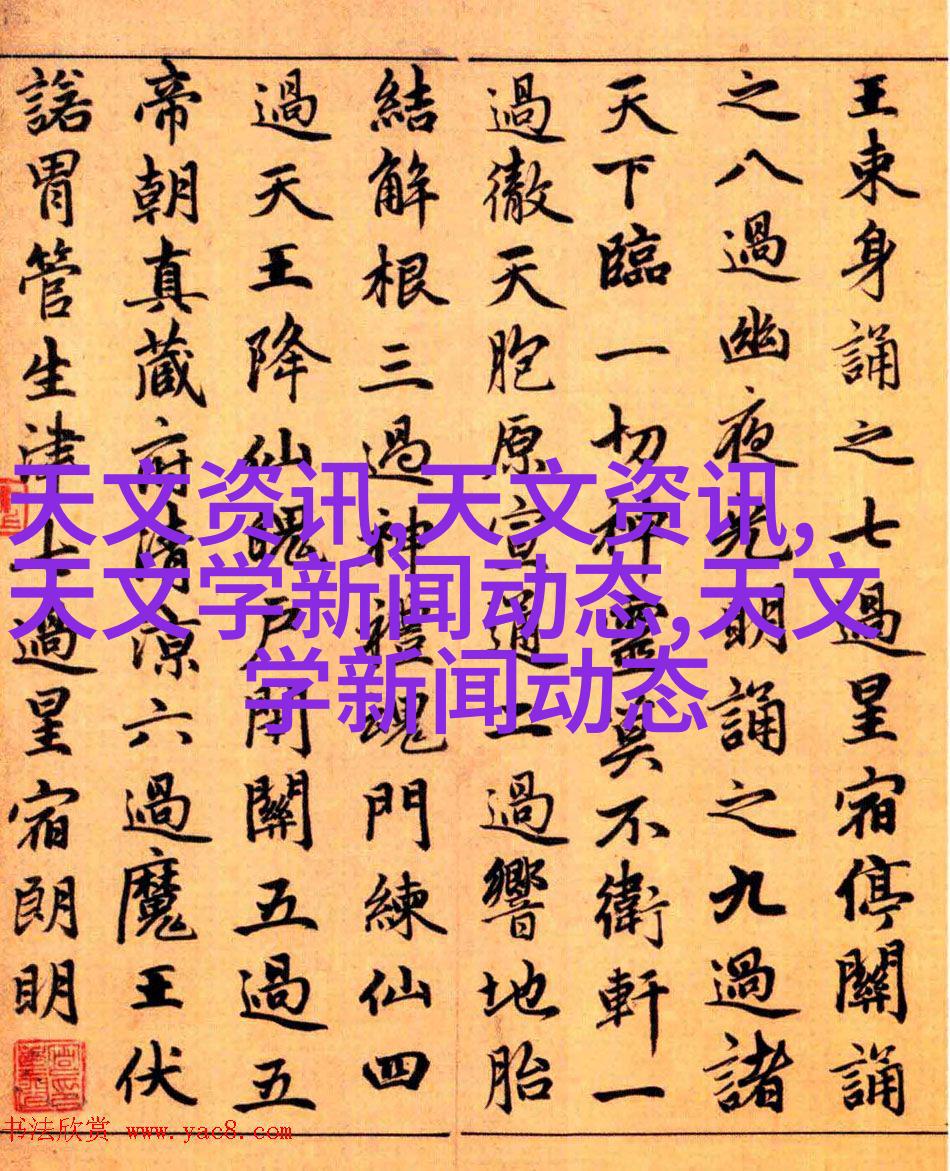 王東身誦之七過星宿停關誦
之八過幽夜光明誦之九過諸
天下臨一切神靈莫不衛軒一
過徹天胞原宣通二過響地胎
結解根三過神禮魂門練仙四
過天王降仙魄戶閉關五過五
帝朝真藏府清涼六過魔王伏
諾胃管生津七過星宿朗明
天文资讯,天文资讯,
天文学新闻动态,天文
学新闻动态
书法欣赏 www.yac8.com